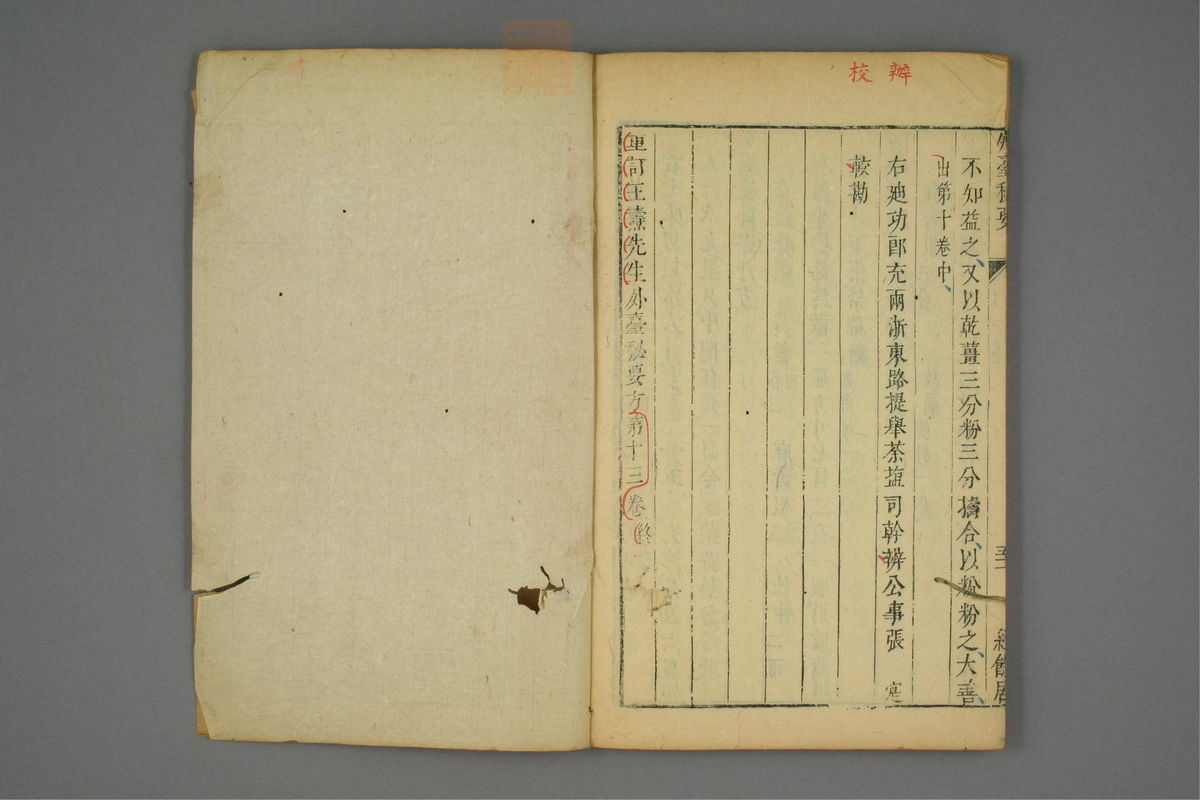 辦
校
外臺秘要
五十二
經餘居
不知益之又以乾薑三分粉三分擣合以粉粉之大善
出第十卷中
右廸功郎充兩浙東路提舉茶塩司幹辦公事張寔
較勘
重訂王燾先生外臺秘要方第十三卷終